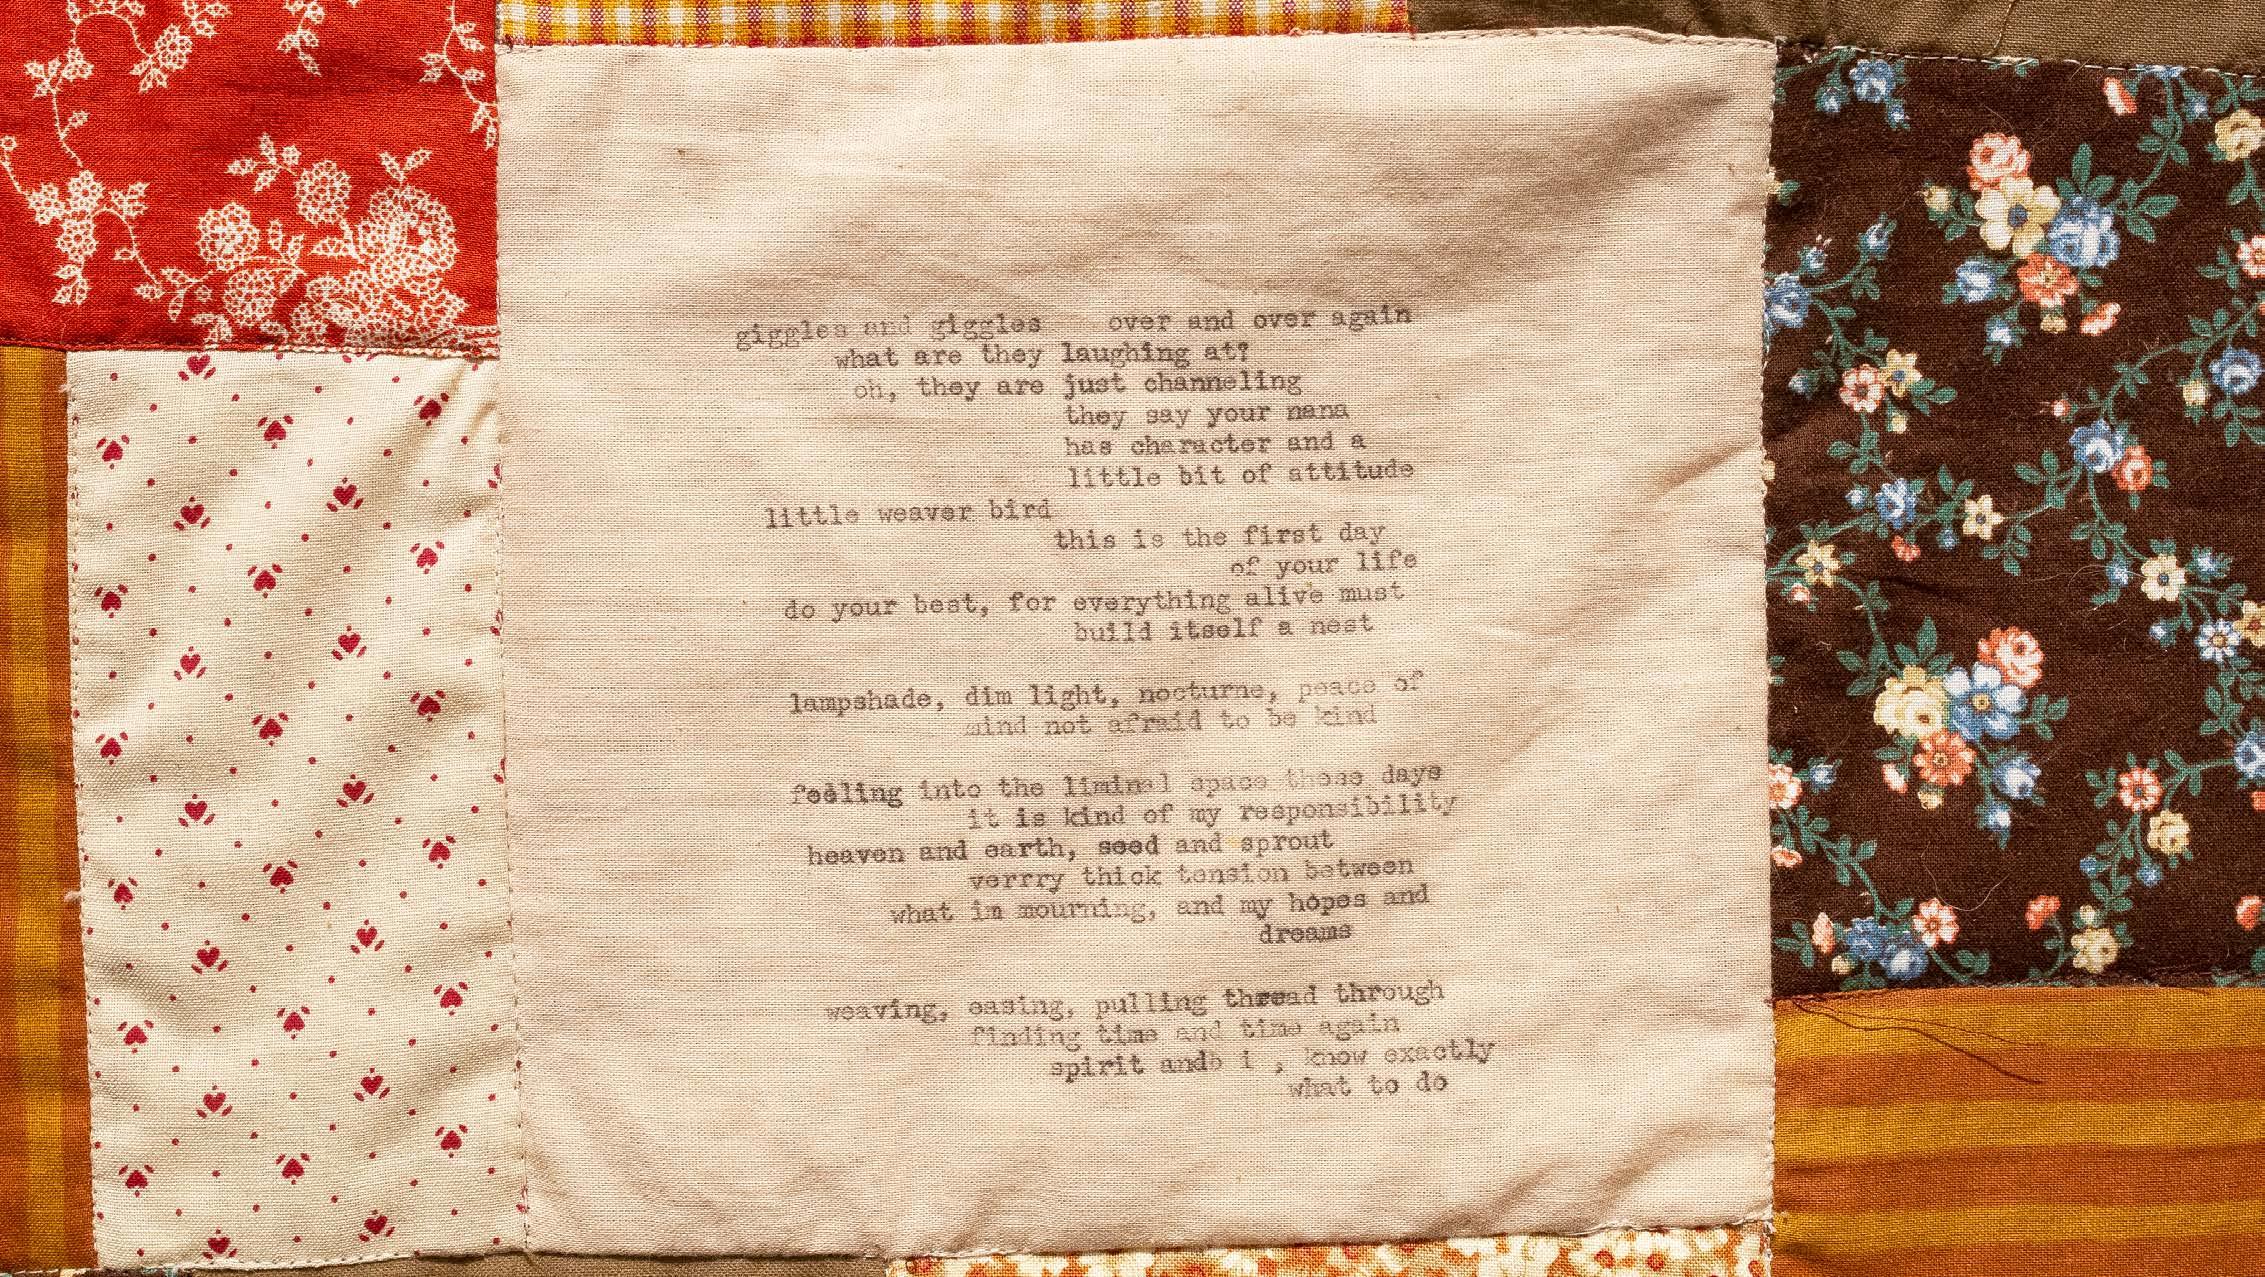 giggles and giggles over and over again
what are they laughing at?
oh, they are just channeling
they say your nana
has character and a
little bit of attitude
little weaver bird
this is the first day
of your life
do your best, for everything alive must
build itself a nest
lampshade, dim light, nocturne, peace of
mind not afraid to be kind
feeling into the liminal space these days
it is kind of my responsibility
heaven and earth, seed and sprout
verrry thick tension between
what im mourning, and my hopes and
dreams
weaving, easing, pulling thread through
finding time and time again
spirit andb i , know exactly
what to do